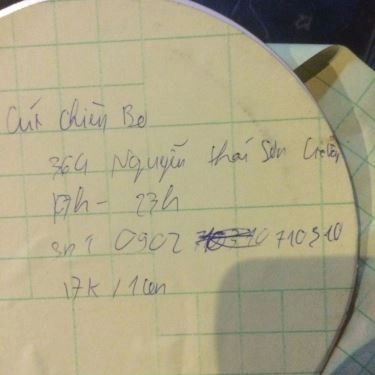 Cút chiên Bơ
364 Nguyễn thái Sơn
17h - 23h
0902 710310
17k / 1con